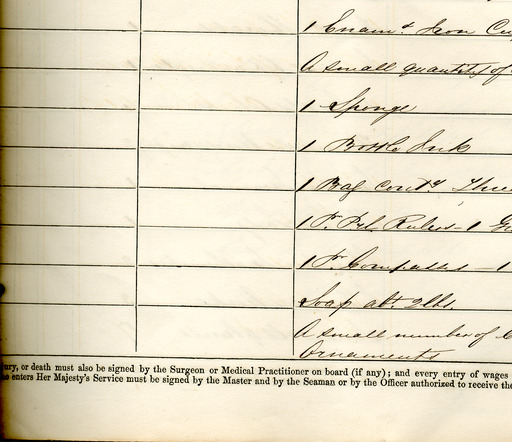 1 Enam.d Iron Cup
A small quantity of
1 Sponge
1 Bottle Ink
1 Bag cont.g Thre
1 Pr. Pl. Rulers - 1
1 Pr. Compasses - 1
Soap abt. 2 lbs.
A small number of
Ornaments
jury, or death must also be signed by the Surgeon or Medical Practitioner on board (if any); and every entry of wages
enters Her Majesty's Service must be signed by the Master and by the Seaman or by the Officer authorized to receive the